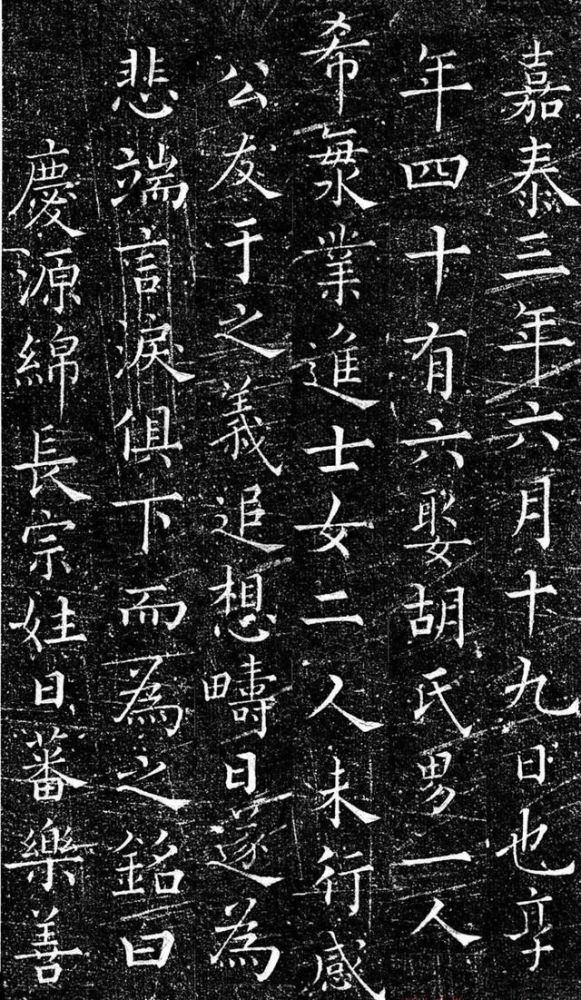 嘉泰三年六月十九日也享
年四十有六娶胡氏男一人
希毚業進士女二人未行感
公友于之義追想疇日遂為
悲端言淚俱下而為之銘曰
慶源綿長宗姓日蕃樂善